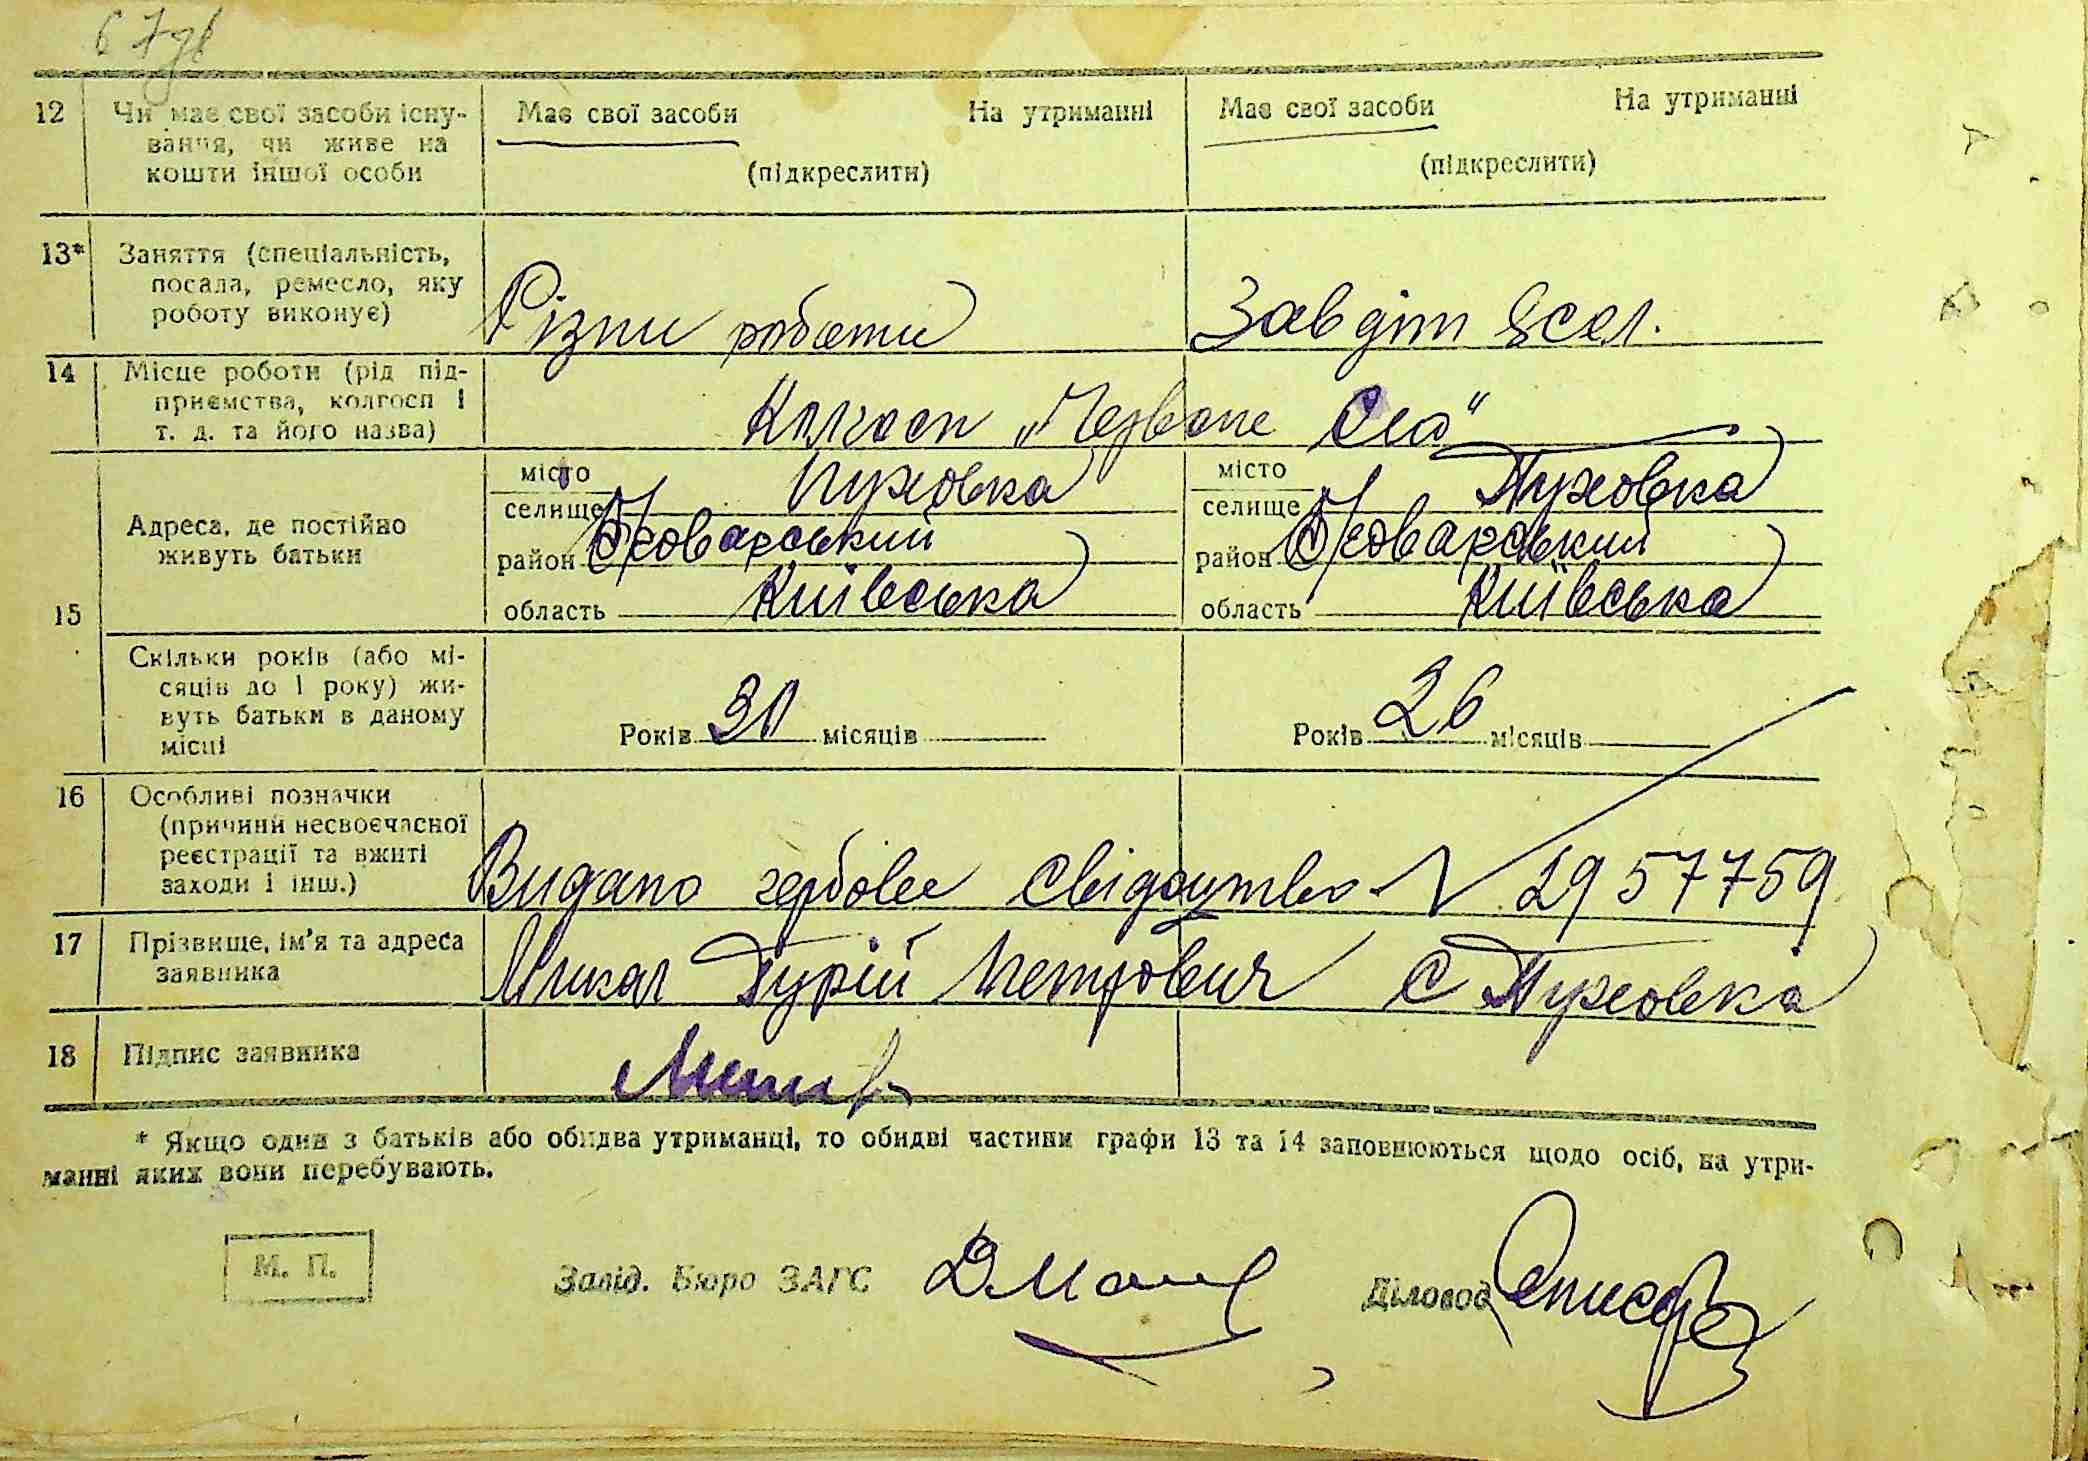 67
12 Чи має свої засоби існу-
вання, чи живе на
кошти іншої особи
Має свої засоби На утриманні
(підкреслити)
Має свої засоби На утриманні
(підкреслити)
13* Заняття (спеціальність,
посада, ремесло, яку
роботу виконує)
Різни роботи
Зав діт ясел.
14 Місце роботи (рід під-
приємства, колгосп і
т. д. та його назва)
Колгосп „Червоне Село"
15 Адреса, де постійно
живуть батьки
місто
селище Пуховка
район Броварський
область Київська
місто
селище Пуховка
район Броварський
область Київська
Скільки років (або мі-
сяців до 1 року) жи-
вуть батьки в даному
місці
Років 30 місяців
Років 26 місяців
16 Особливі позначки
(причини несвоєчасної
реєстрації та вжиті
заходи і інш.)
Видано гербове свідоцтво N 2957759
17 Прізвище, ім'я та адреса
заявника
Микал Гурій Петрович с Пуховка
18 Підпис заявника
* Якщо один з батьків або обидва утриманці, то обидві частини графи 13 та 14 заповнюються щодо осіб, на утри-
манні яких вони перебувають.
М. П.
Завід. Бюро ЗАГС
Діловод